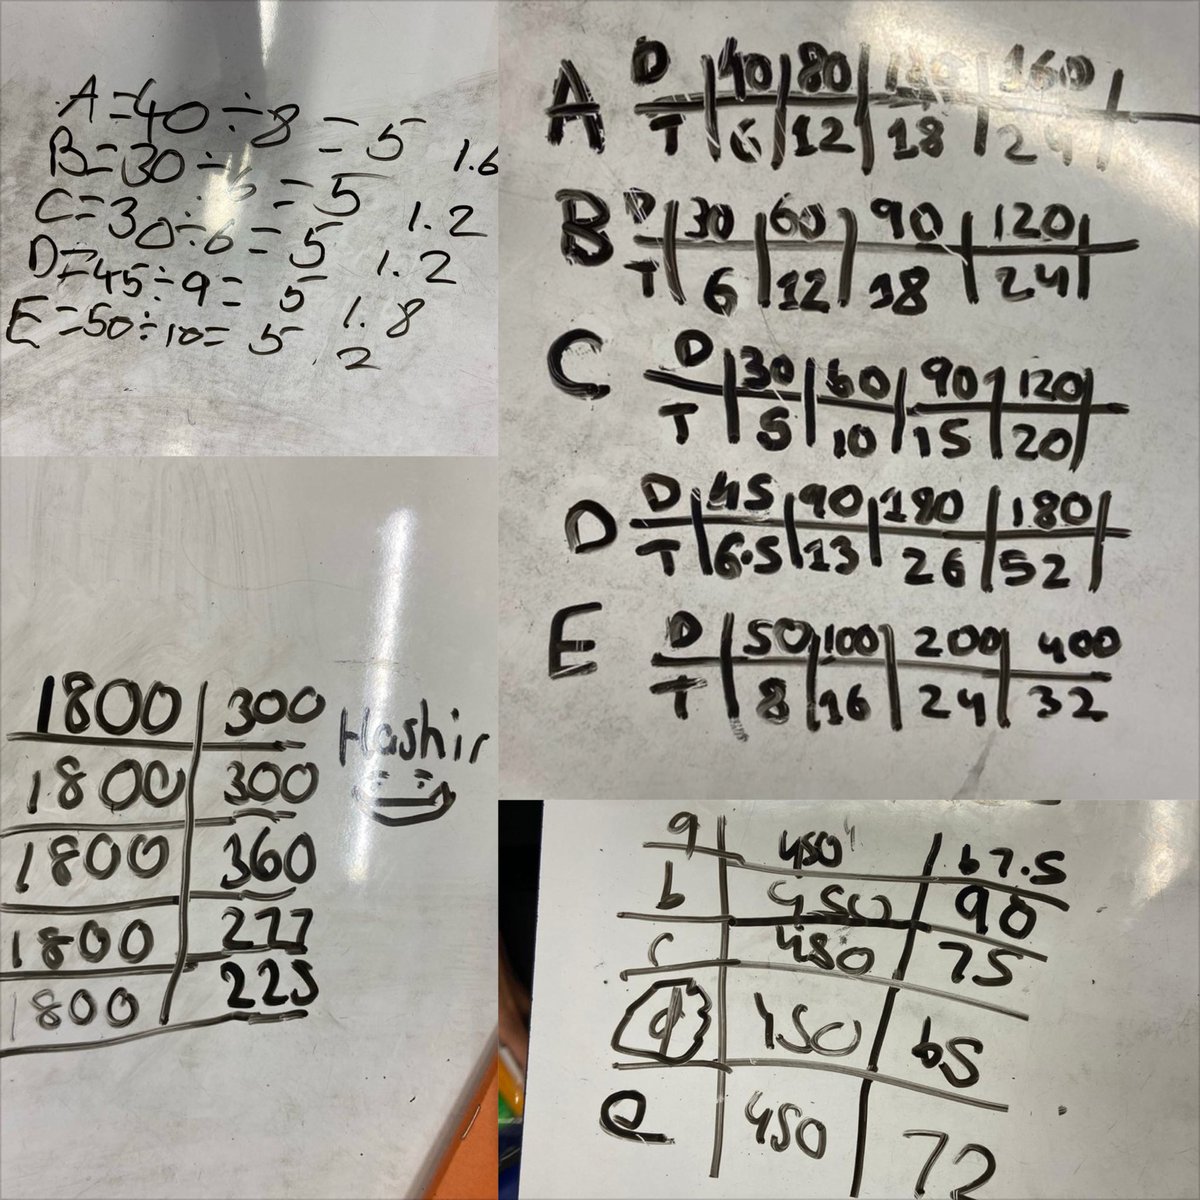 A=40÷8=5 1.6
B=30÷6=5 1.2
C=30÷6=5 1.2
D=45÷9=5 1.8
E=50÷10=5 2
A D 40 80 160
T 6 12 18 24
B D 30 60 90 120
T 6 12 18 24
C D 30 60 90 120
T 5 10 15 20
D D 45 90 180 180
T 6.5 13 26 52
E D 50 100 200 400
T 8 16 24 32
1800 300
Hashir
1800 300
1800 360
1800 277
1800 225
a 450 67.5
b 450 90
c 450 75
d 450 65
e 450 72